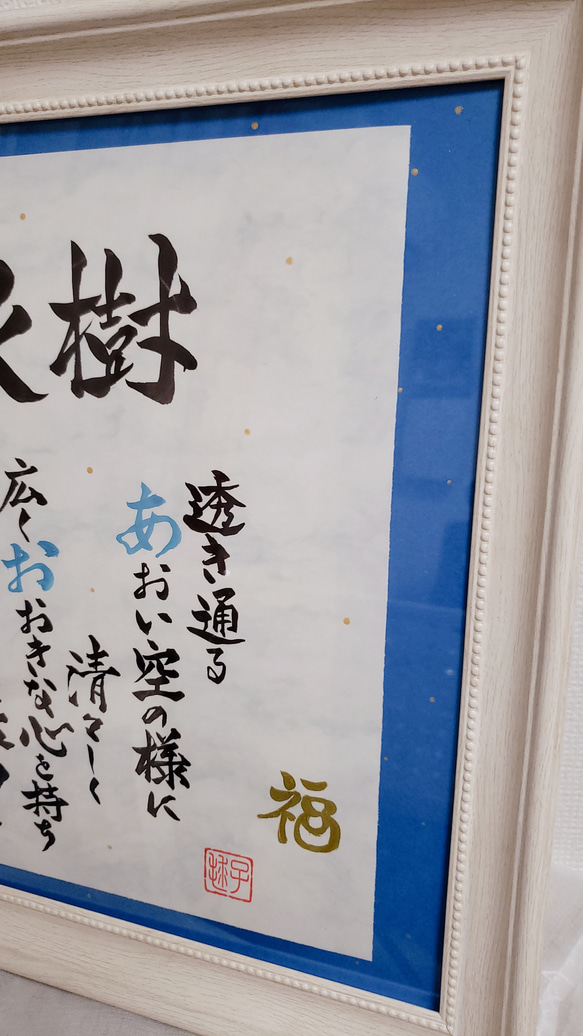 樹
透き通る
あおい空の様に
清々しく
広くおおきな心を持ち
福